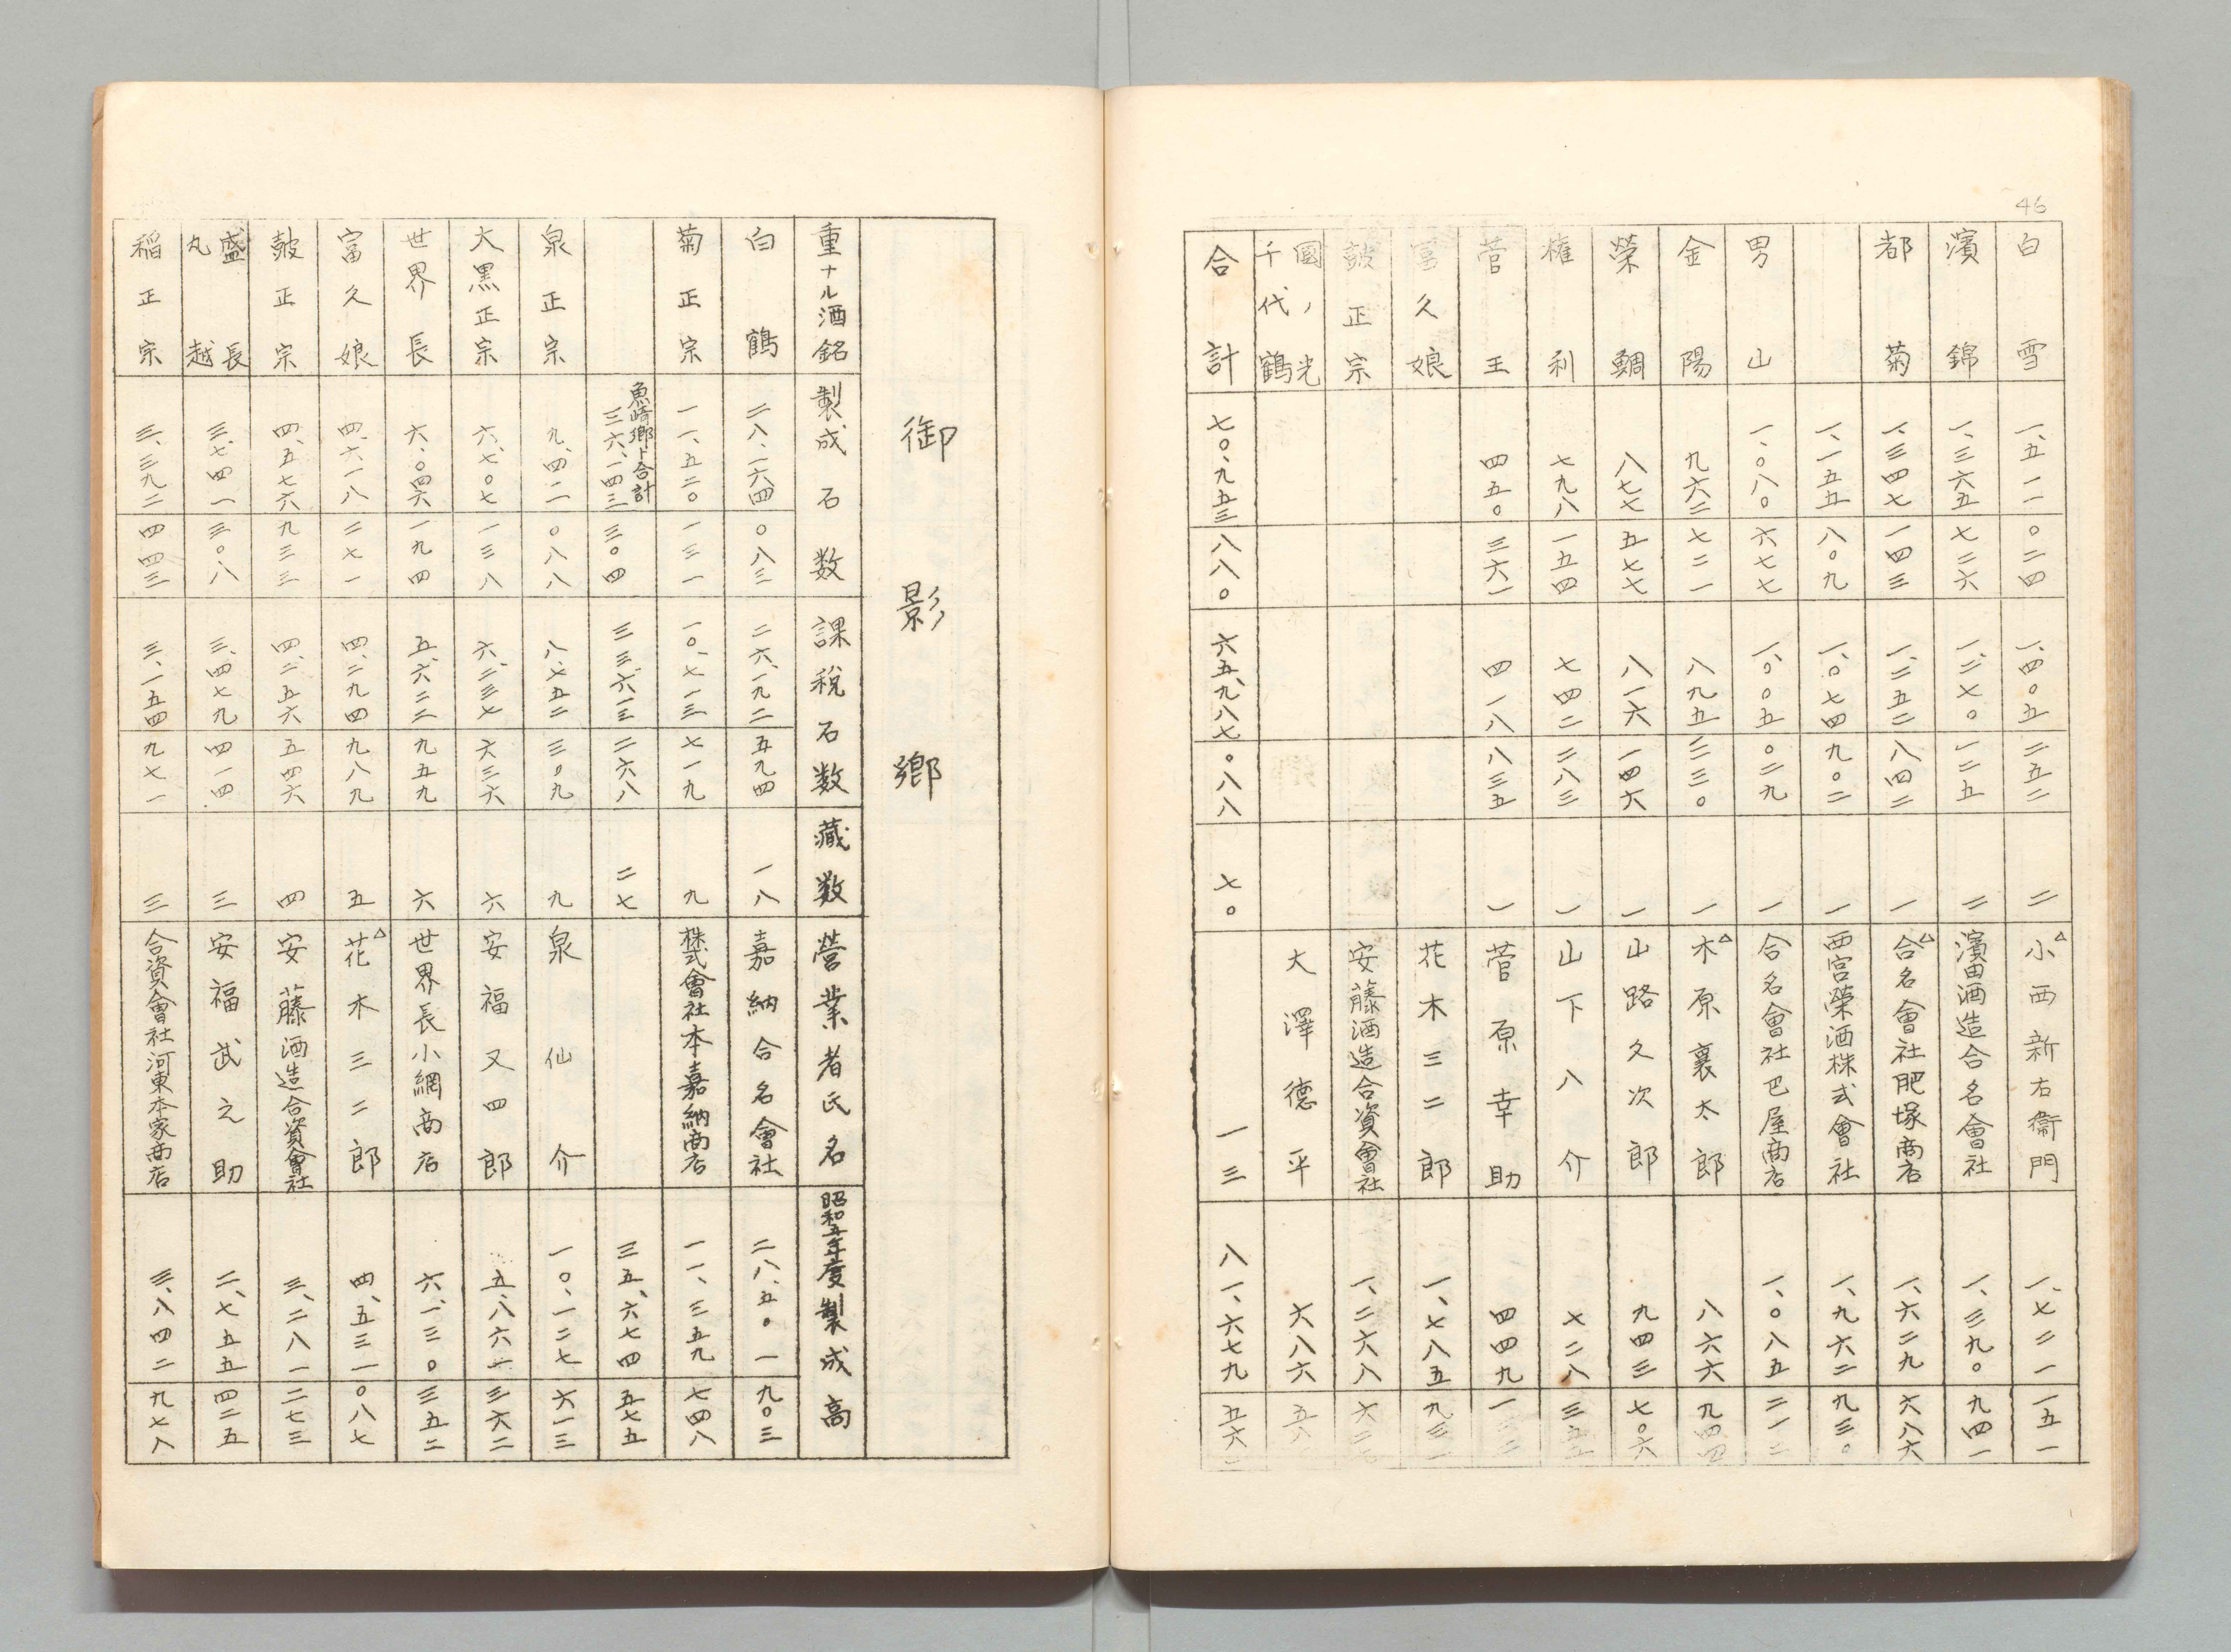 46
白雪 一、五一一 〇二四 一、四〇五 二五二 二 △小西新右衞門 一、七二一 一五一
濱錦 一、三六五 七二六 一、二七〇 一二五 二 濱田酒造合名會社 一、三九〇 九四一
都菊 一、三四七 一四三 一、二五二 八四二 一 △合名會社肥塚商店 一、六二九 六八六
一、一五五 八〇九 一、〇七四 九〇二 一 西宮榮酒株式會社 一、九六二 九三〇
男山 一、〇八〇 六七七 一、〇〇五 〇二九 一 合名會社巴屋商店 一、〇八五 二一二
金陽 九六二 七二一 八九五 三三〇 一 △木原襄太郎 八六六 九四四
榮鯛 八七七 五七七 八一六 一四六 一 山路久次郎 九四三 七〇六
権利 七九八 一五四 七四二 二八三 一 山下八介 七二八
菅王 四五〇 三六一 四一八 八三五 一 菅原幸助 四四九
富久娘 花木三二郎 一、七八五
鼓正宗 安藤酒造合資會社 一、二六八
國ノ光
千代鶴 大澤德平 六八六
合計 七〇、九五三 八八〇 六五、九八七 〇八八 七〇 一三 八一、六七九
御影鄉
重ナル酒銘 製成石数 課稅石数 藏数 營業者氏名 昭和五年度製成高
白鶴 二八、一六四 〇八三 二六、一九二 五九四 一八 嘉納合名會社 二八、五〇一 九〇三
菊正宗 一一、五二〇 一三一 一〇、七一三 七一九 九 株式會社本嘉納商店 一一、三五九 七四八
魚崎鄉ト合計
三六、一四三 三〇四 三三、六一三 二六八 二七 三五、六七四 五七五
泉正宗 九、四一一 〇八八 八、七五二 三〇九 九 泉仙介 一〇、一二七 六一三
大黒正宗 六、七〇七 一三八 六、二三七 六三六 六 安福又四郎 五、八六一 三六二
世界長 六、〇四六 一九四 五、六二二 九五九 六 世界長小網商店 六、一三〇 三五二
富久娘 四、六一八 二七一 四、二九四 九八九 五 △花木三二郎 四、五三一 〇八七
鼓正宗 四、五七六 九三三 四、二五六 五四六 四 安藤酒造合資會社 三、二八一 二七三
盛長
丸越 三、七四一 三〇八 三、四七九 四一四 三 安福武之助 二、七五五 四二五
稲正宗 三、三九二 四四三 三、一五四 九七一 三 合資會社河東本家商店 三、八四二 九七八